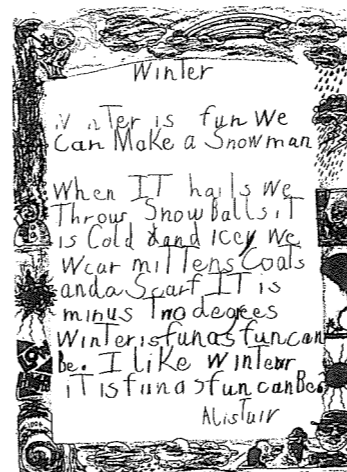 Winter
Winter is fun We
Can Make a Snowman
When IT hails We
Throw Snow Balls iT
is Cold and Icey We
Wear miTTens Coats
anda Scarf IT is
minus Two degees
Winterisfunasfuncan
be. I like Winter
iTisfunasfuncanBe.
Alistair